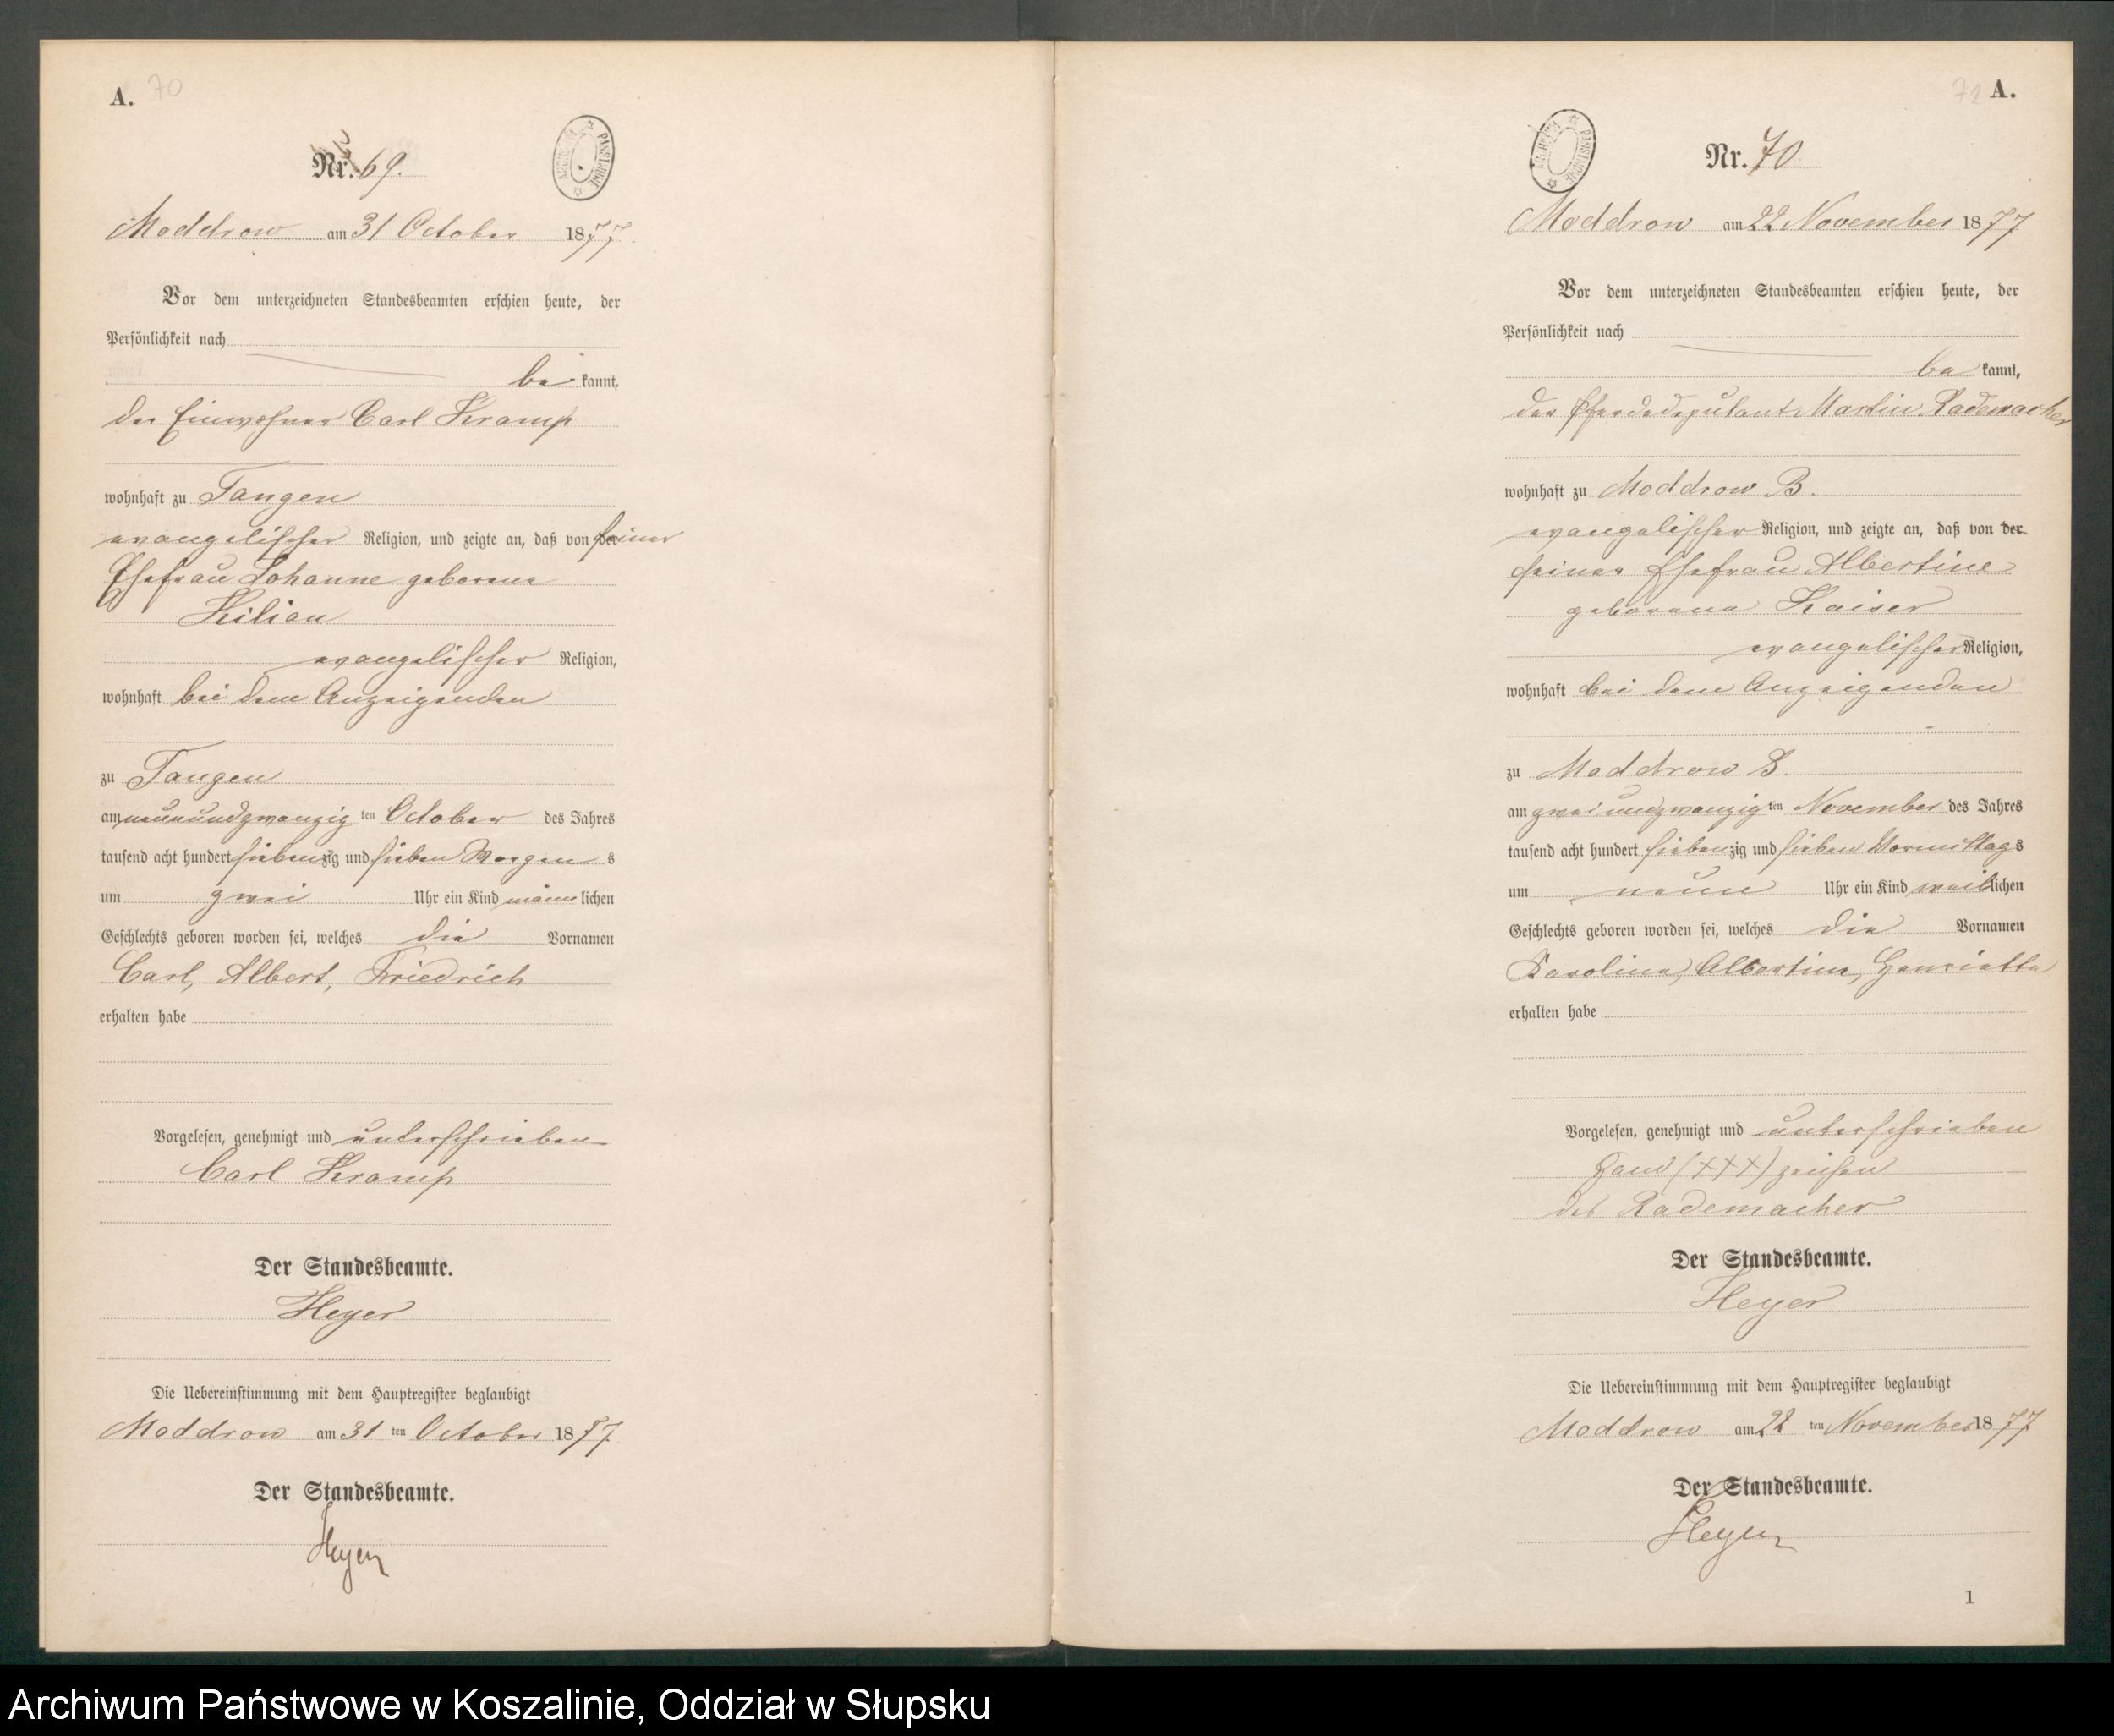 A. 70
Nr. 69.
ARCHIWUM PAŃSTWOWE
Moddrow am 31 October 1877.
Vor dem unterzeichneten Standesbeamten erschien heute, der
Persönlichkeit nach
bekannt,
der Einwohner Carl Kramp
wohnhaft zu Tangen
evangelischer Religion, und zeigte an, daß von der seiner
Ehefrau Johanne geborene
Kilian
evangelischer Religion,
wohnhaft bei dem Anzeigenden
zu Tangen
am neunundzwanzig ten October des Jahres
tausend acht hundert siebenzig und sieben Morgens
um zwei Uhr ein Kind männlichen
Geschlechts geboren worden sei, welches die Vornamen
Carl, Albert, Friedrich
erhalten habe
Vorgelesen, genehmigt und unterschrieben
Carl Kramp
Der Standesbeamte.
Heyer
Die Uebereinstimmung mit dem Hauptregister beglaubigt
Moddrow am 31 ten October 1877
Der Standesbeamte.
Heyer
71 A.
Nr. 70
ARCHIWUM PAŃSTWOWE
Moddrow am 22 November 1877
Vor dem unterzeichneten Standesbeamten erschien heute, der
Persönlichkeit nach
bekannt,
der Pferdedeputant Martin Rademacher
wohnhaft zu Moddrow B.
evangelischer Religion, und zeigte an, daß von der
seiner Ehefrau Albertine
geborene Kaiser
evangelischer Religion,
wohnhaft bei dem Anzeigenden
zu Moddrow B.
am zweiundzwanzig ten November des Jahres
tausend acht hundert siebenzig und sieben Vormittags
um neun Uhr ein Kind weiblichen
Geschlechts geboren worden sei, welches die Vornamen
Karoline, Albertine, Henriette
erhalten habe
Vorgelesen, genehmigt und unterschrieben
Hand (XXX) zeichen
des Rademacher
Der Standesbeamte.
Heyer
Die Uebereinstimmung mit dem Hauptregister beglaubigt
Moddrow am 22 ten November 1877
Der Standesbeamte.
Heyer
1
Archiwum Państwowe w Koszalinie, Oddział w Słupsku